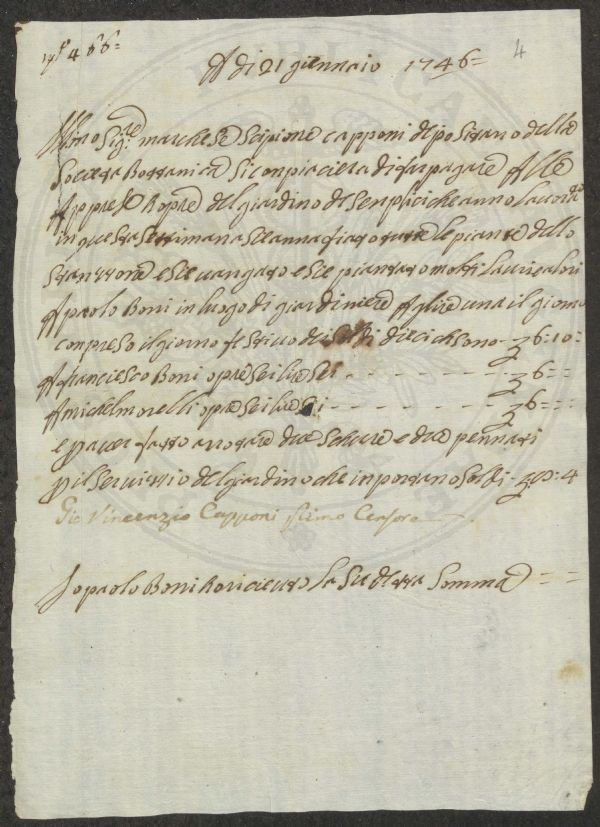 N° 466=
4
A di 21 giennaio 1746=
Ill.mo Sig.re marchese Scipione capponi dipositario della
Societa Bottanica Si conpiaciera di far pagare Alle
Appresso Hopre del giardino de Senplici che anno lavorato
in questa Settimana Si e annafiato tutte le piante dello
Stanzzone e Si e vangato e Si e piantato molti lauri e alori
A paolo Boni in luogo di giardiniere A lire una il giorno
conpreso il giorno festivo di Soldi dieci che Sono - £ 6:10:
A franciesco Boni opre Sei lire Sei - - - - £ 6= =
A michel morelli opre Sei lire Sei - - - - £ 6= =
e p aver fatto arrotare due Schure e due pennati
p il Servizzio del giardino che inportano Soldi - £ 00: 4
Gio Vincenzio Capponi Primo Censore
Io paolo Boni ho riceuto la Su detta Somma = =